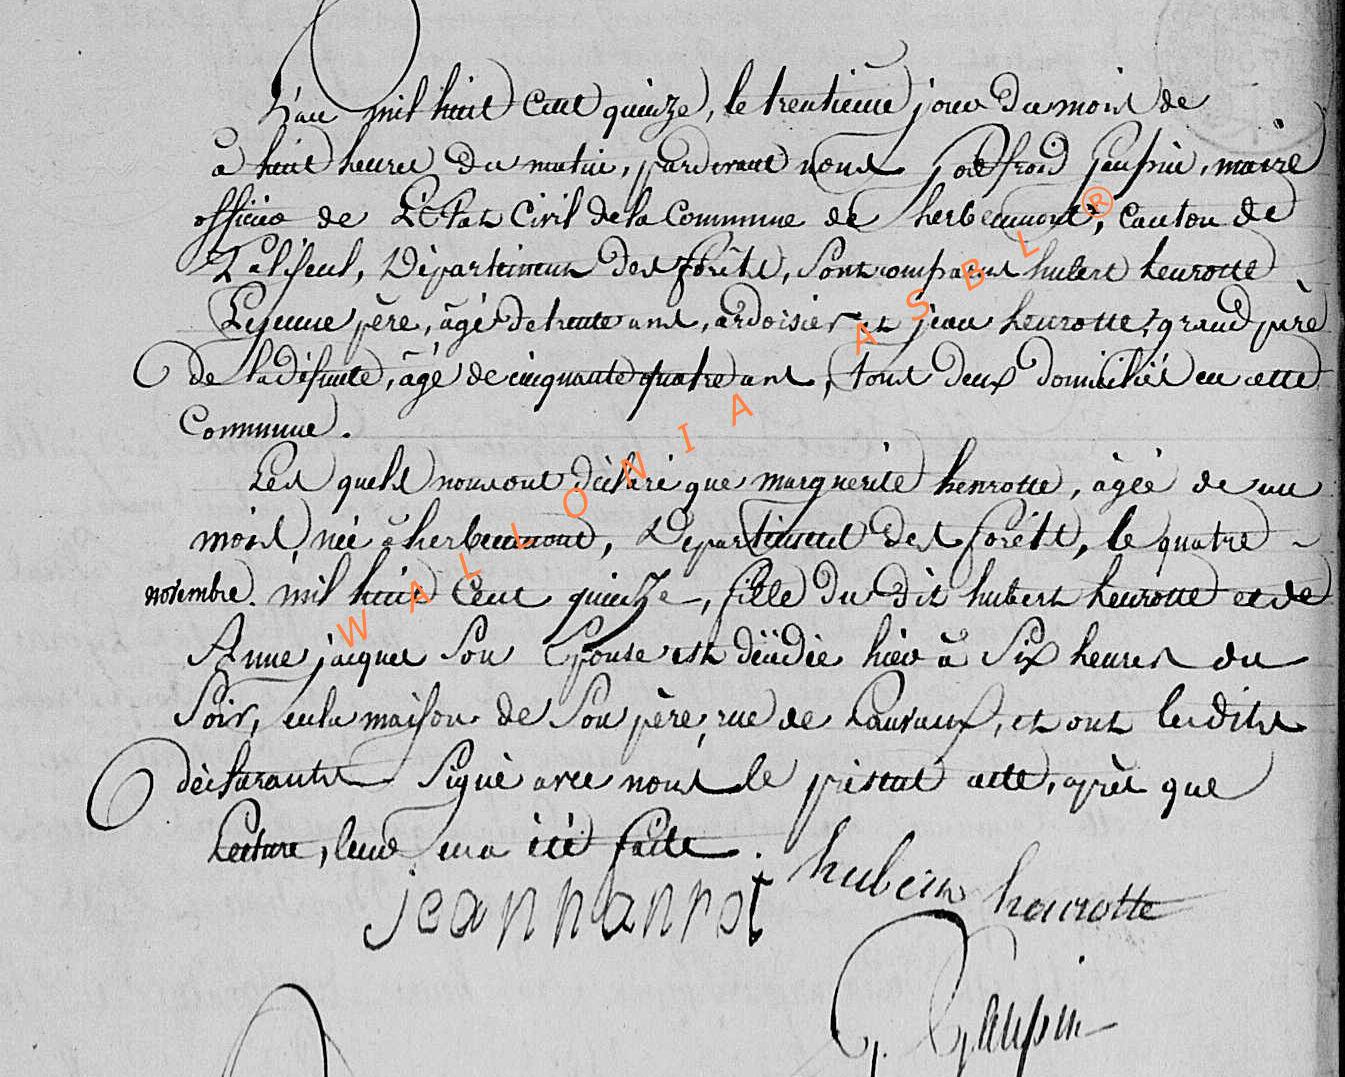 L'an mil huit Cent quinze, le trentieme jour du mois de
à huit heures du matin, pardevant nous Godfroid Jeuspin, maire
officier de L'Etat Civil de la Commune de herbeumont, Canton de
Paliseul, Département des forêts, Sont comparus hubert henrotte
Lejeune père, âgé de trente ans, ardoisier et jean henrotte, grand père
de la défunte, âgé de cinquante quatre ans, tous deux domiciliés en cette
Commune.
Les quels nous ont déclaré que marguerite henrotte, âgée de un
mois, née à herbeumont, Département des forêts, le quatre
novembre mil huit Cent quinze, fille du dit hubert henrotte et de
Anne jacques Son Epouse est décédée hier à Six heures du
Soir, en la maison de Son père, rue de et ont les dits
déclarants Signé avec nous le présent acte, après que
Lecture, leur en a été faite.
hubert henrotte
jean hanrot
WALLONIA ASBL ®